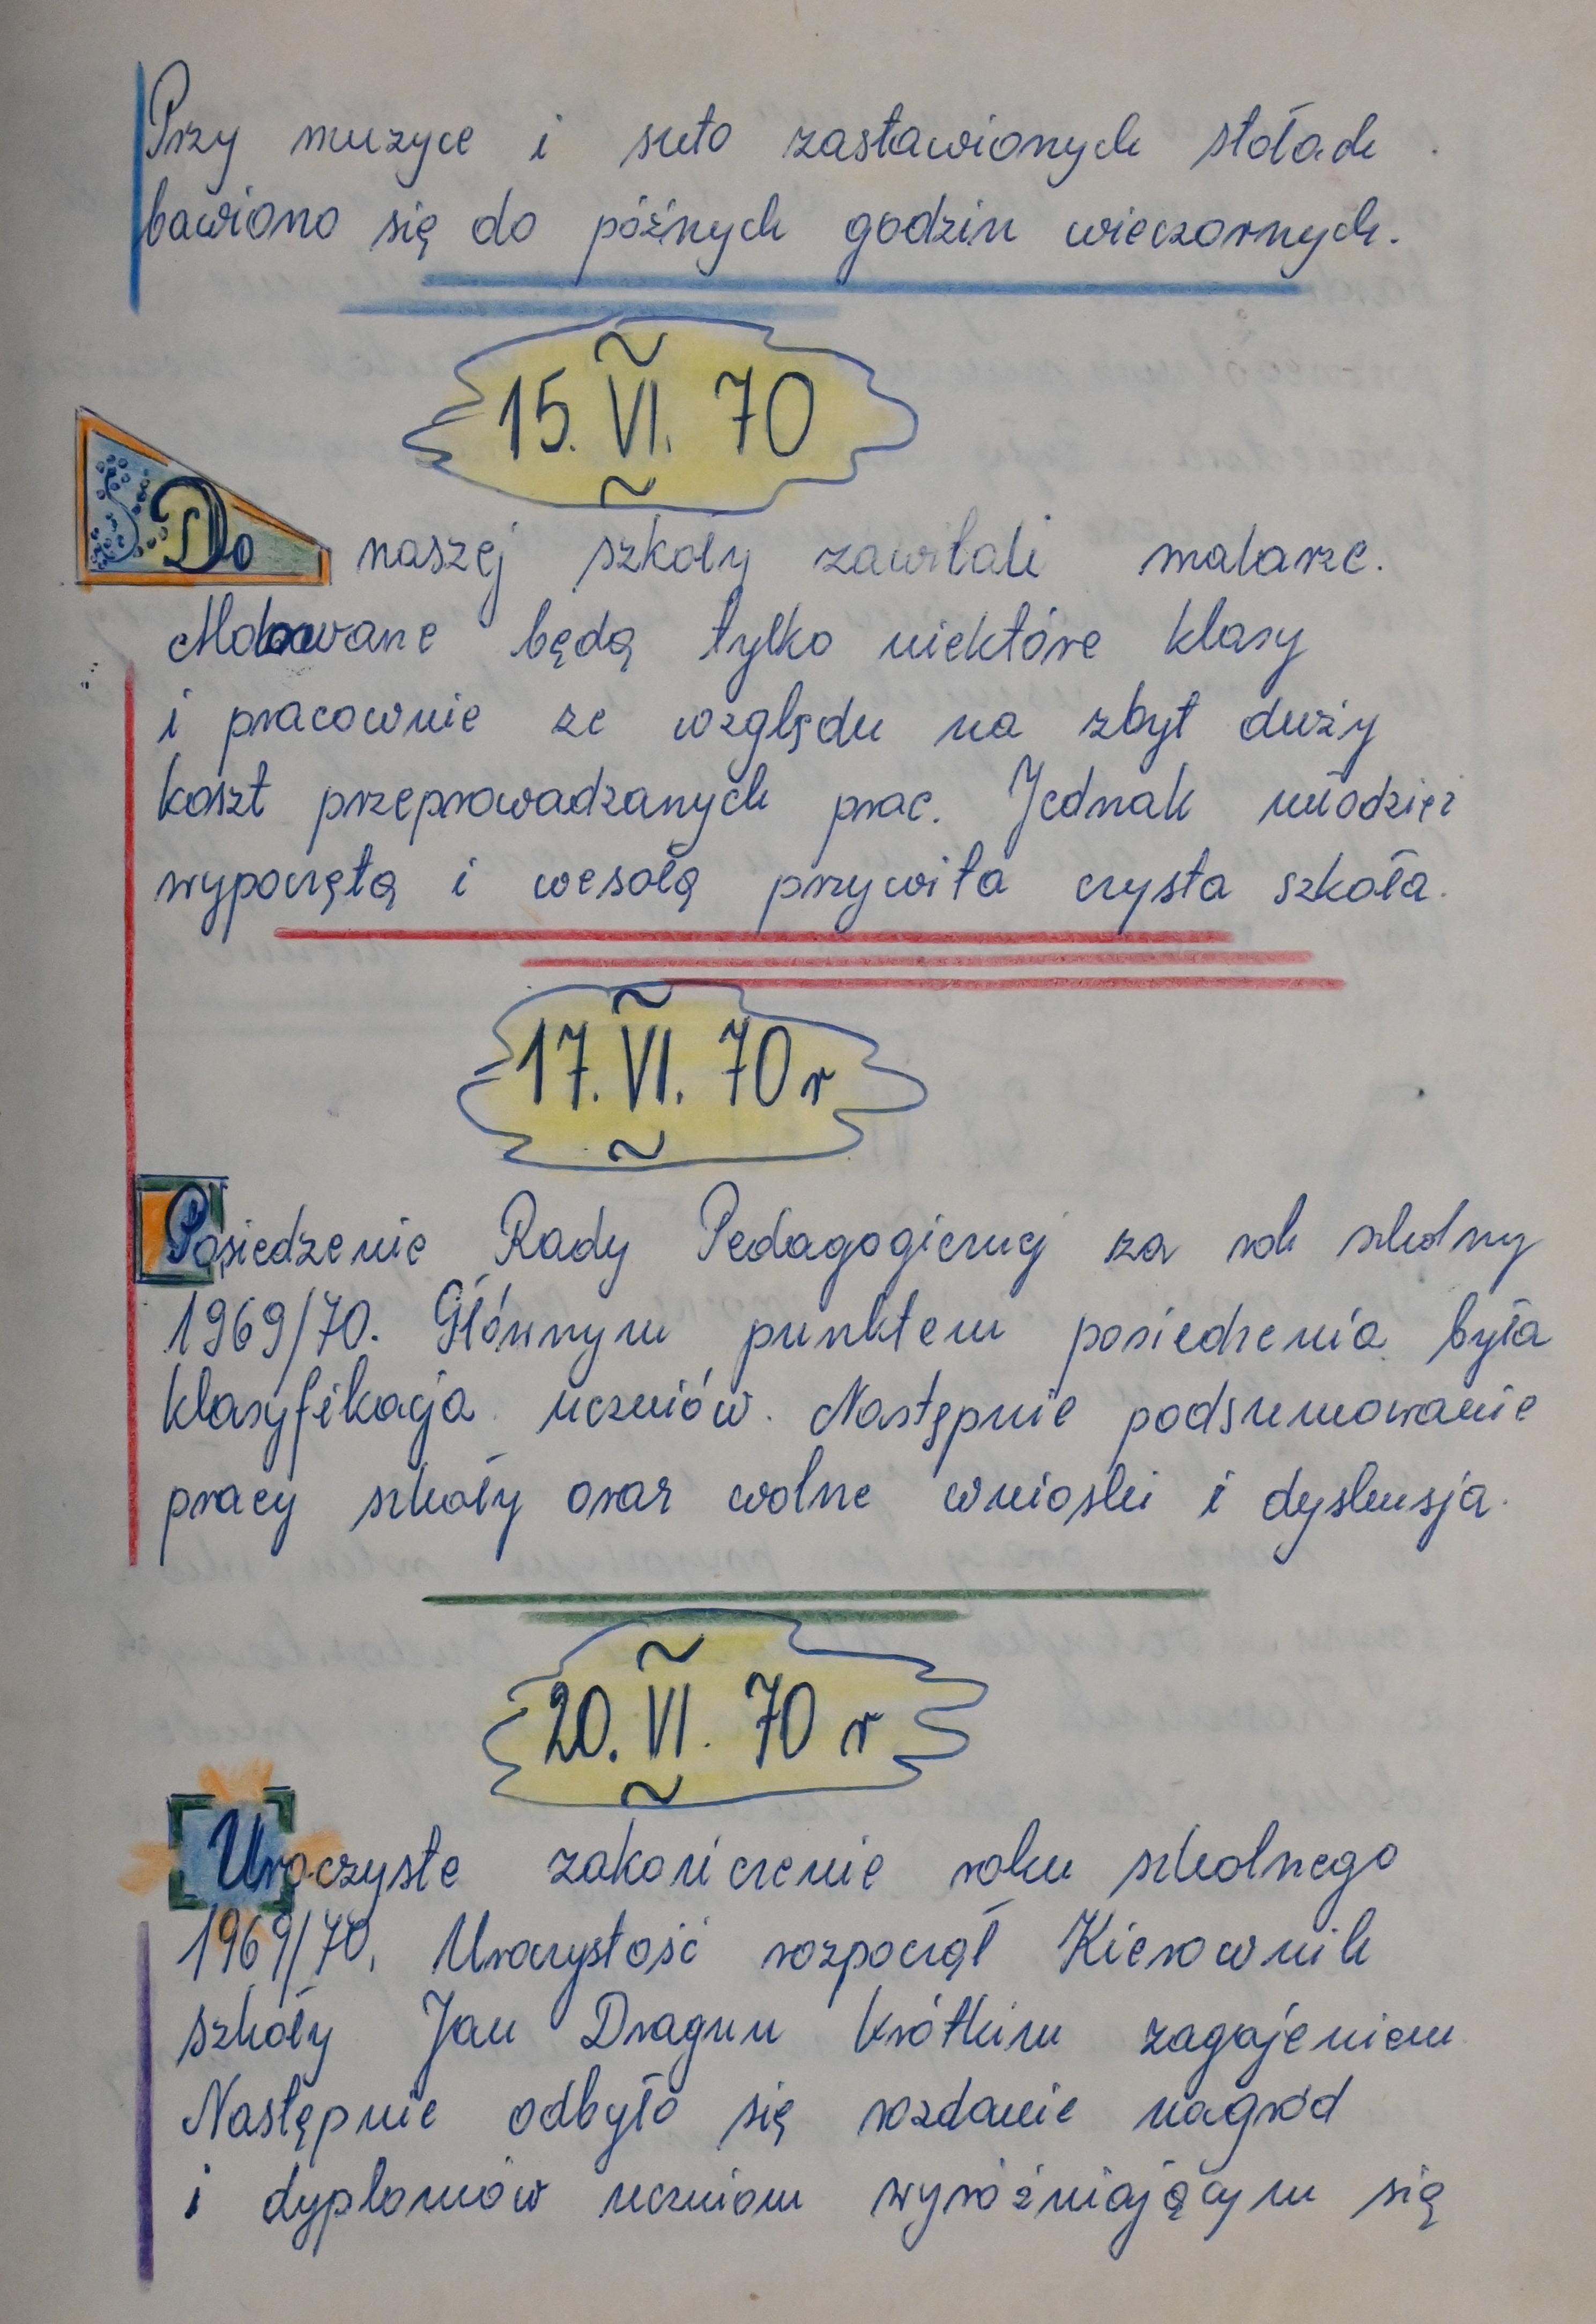 Przy muzyce i suto zastawionych stołach
bawiono się do późnych godzin wieczornych.
15. VI. 70
Do naszej szkoły zawitali malarze.
Malowane będą tylko niektóre klasy
i pracownie ze względu na zbyt duży
koszt przeprowadzanych prac. Jednak młodzież
wypoczętą i wesołą przywita czysta szkoła.
17. VI. 70 r
Posiedzenie Rady Pedagogicznej za rok szkolny
1969/70. Głównym punktem posiedzenia była
klasyfikacja uczniów. Następnie podsumowanie
pracy szkoły oraz wolne wnioski i dyskusja.
20. VI. 70 r
Uroczyste zakończenie roku szkolnego
1969/70. Uroczystość rozpoczął Kierownik
szkoły Jan Dragun krótkim zagajeniem
Następnie odbyło się rozdanie nagród
i dyplomów uczniom wyróżniającym się